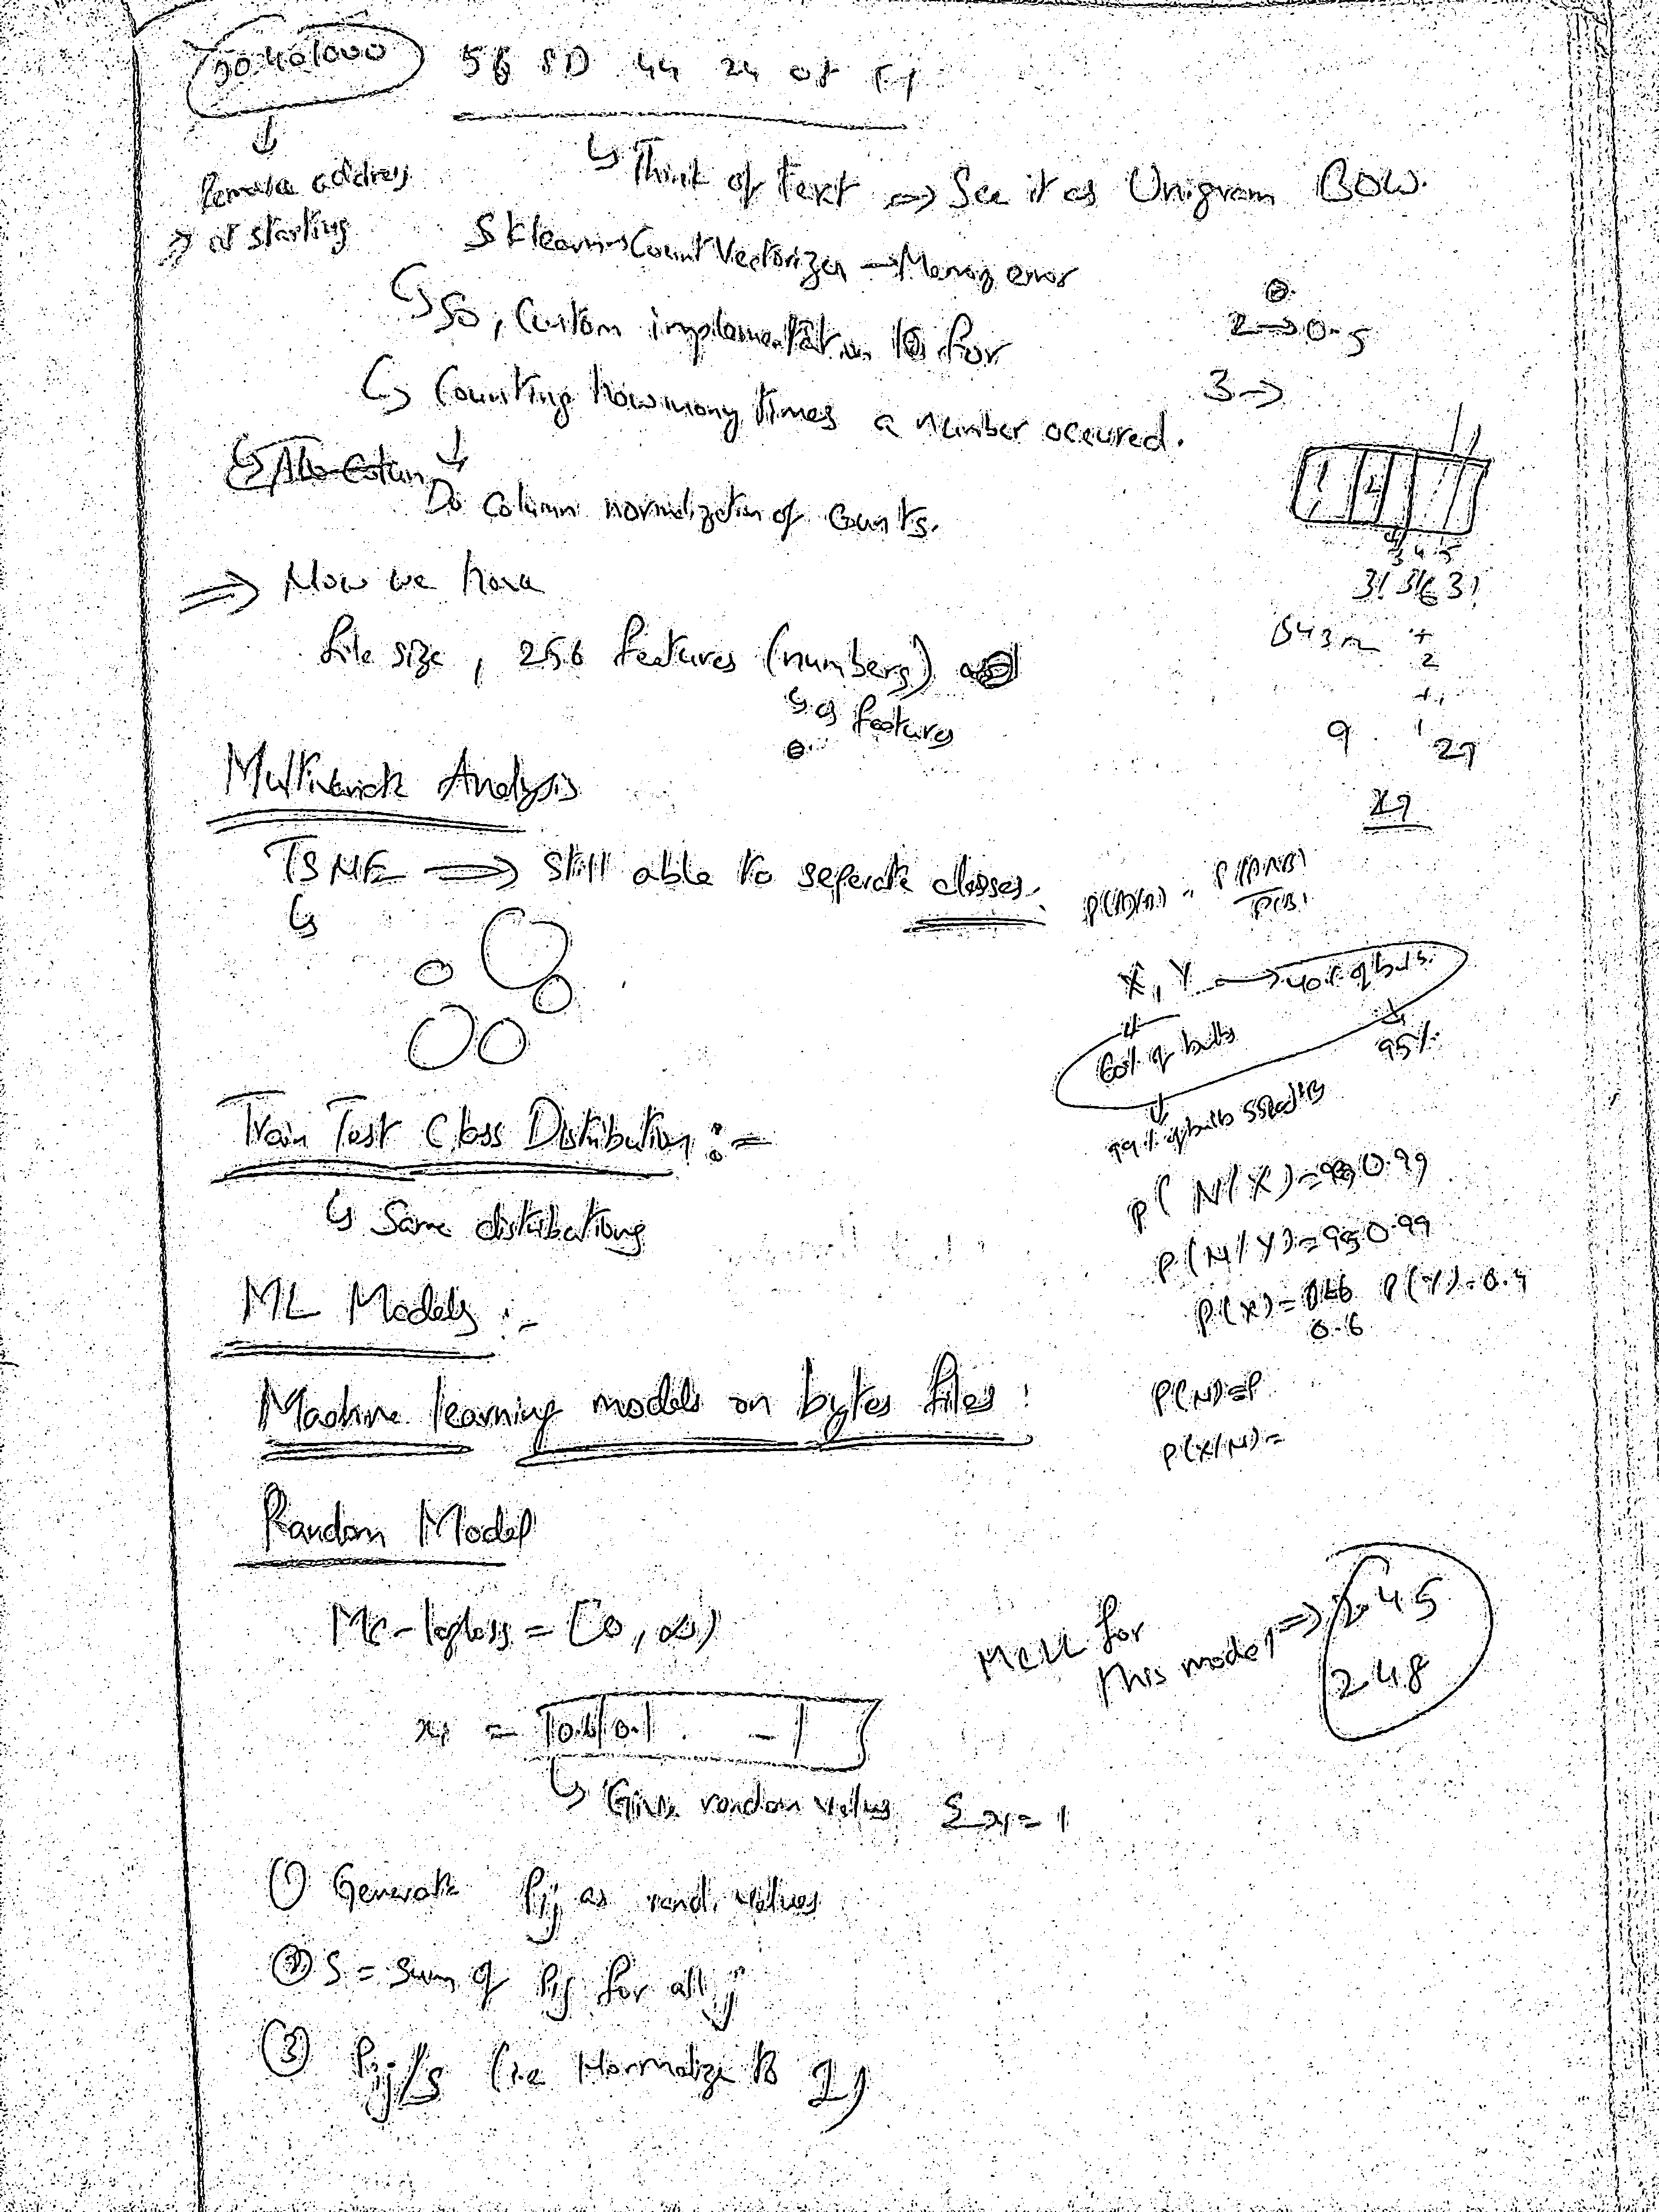 00401000 56 8D 44 24 08
↓
Remove address
⇒ at starting
↳ Think of text ⇒ See it as Unigram BOW.
Sklearn's CountVectorizer → Memory error
↳ So, Custom implementation for
↳ Counting how many times a number occured.
↓
Do column normalization of counts.
⇒ Now we have
file size, 256 features (numbers)
↳ as features
Multivariate Analysis
TSNE ⇒ Still able to seperate classes.
↳
Train Test Class Distribution :-
↳ Same distributions
ML Models :-
Machine learning models on bytes files :
Random Model
Mc-logloss = [0, ∞)
= 0.1 0.1 . -
↳ Give random values Σxi = 1
① Generate Pij as rand. values
② S = sum of Pij for all j
③ Pij/S (i.e Normalize to 1)
2 → 0.5
3 →
1 2
3 4 5
3! 3! 3!
9 27
27
P(A/B) = P(A∩B)
P(B)
X, Y → 40% of bulbs.
60% of bulbs
95%
99% of bulbs
P(N/X) = 0.99
P(N/Y) = 0.99
P(X) = 0.6 P(Y) = 0.4
P(N) = P
P(X/N) =
MCLL for
this model ⇒ 2.45
2.48